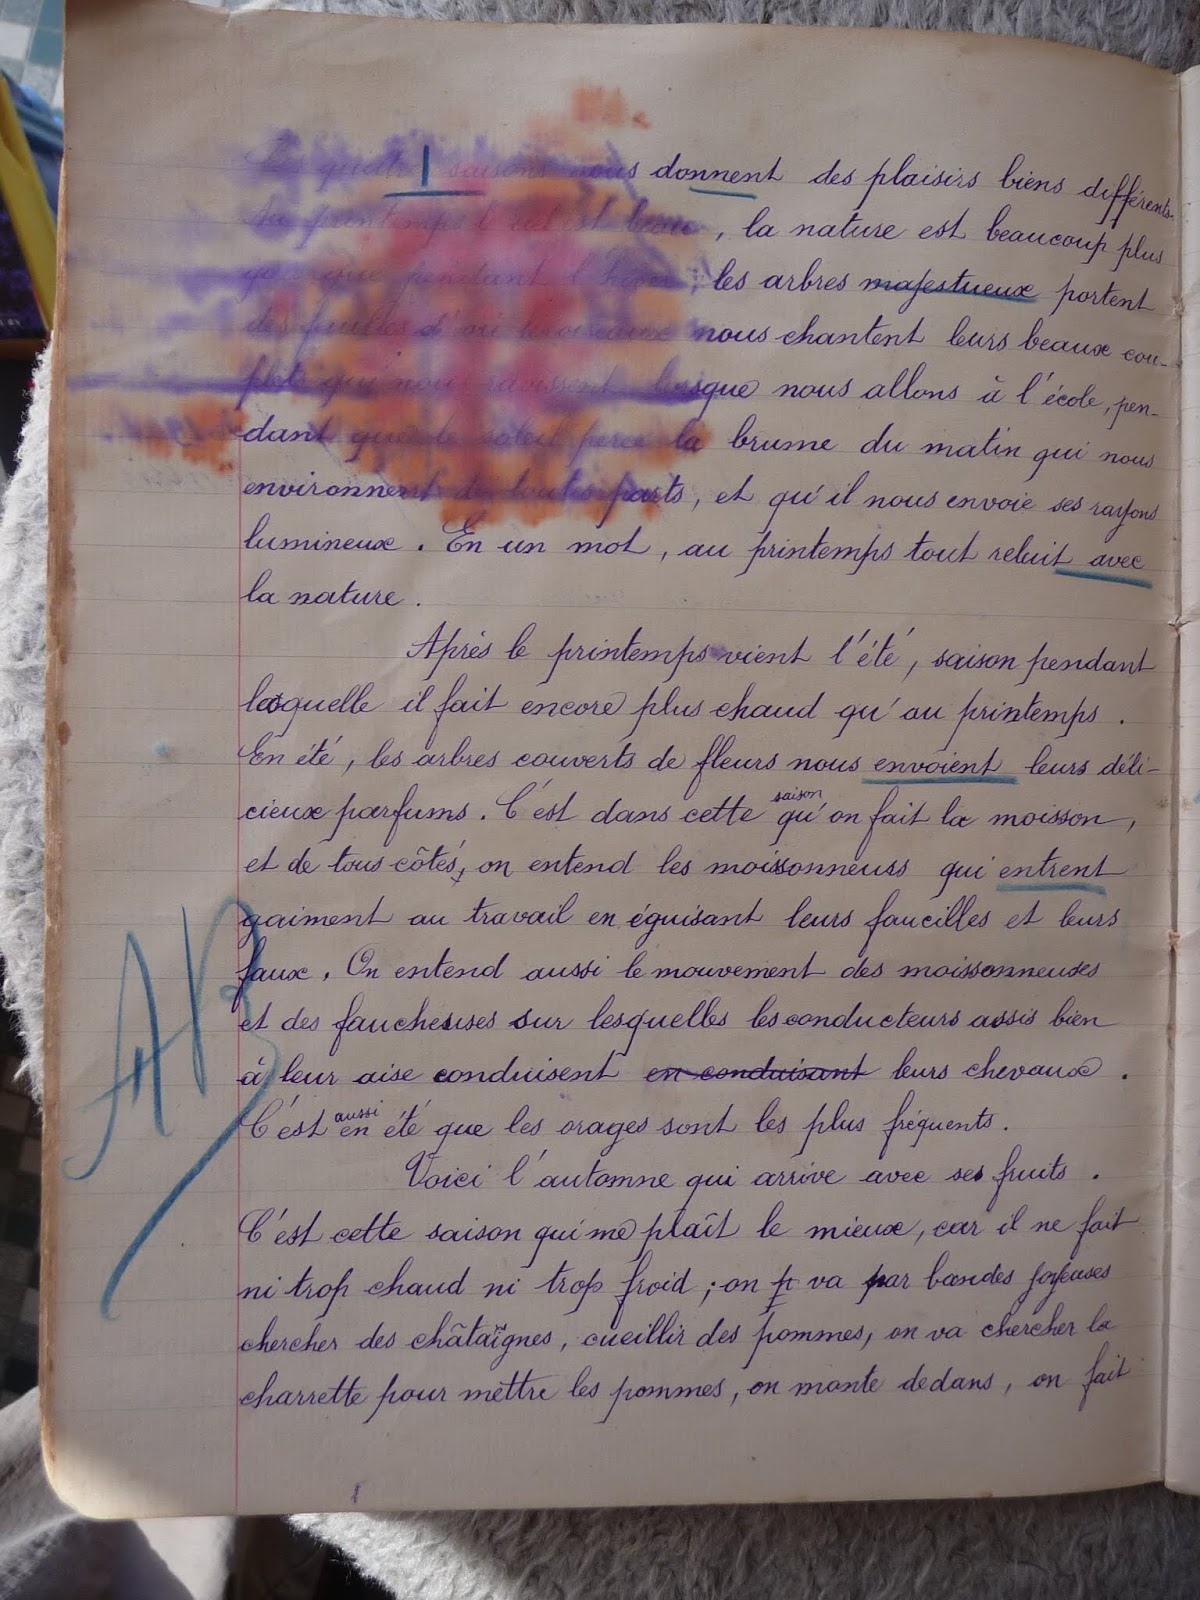 quatre saisons nous donnent des plaisirs biens différents.
Au printemps l est beau, la nature est beaucoup plus
que pendant l'hiver; les arbres majestueux portent
des feuilles d'où les oiseaux nous chantent leurs beaux cou-
plets qui nous ravissent lorsque nous allons à l'école, pen-
dant que le soleil perce la brume du matin qui nous
environnent de toutes parts, et qu'il nous envoie ses rayons
lumineux. En un mot, au printemps tout reluit avec
la nature.
Après le printemps vient l'été, saison pendant
laquelle il fait encore plus chaud qu'au printemps.
En été, les arbres couverts de fleurs nous envoient leurs déli-
cieux parfums. C'est dans cette saison qu'on fait la moisson,
et de tous côtés, on entend les moissonneurs qui entrent
gaiment au travail en éguisant leurs faucilles et leurs
faux. On entend aussi le mouvement des moissonneuses
et des faucheuses sur lesquelles les conducteurs assis bien
à leur aise conduisent en conduisant leurs chevaux.
C'est aussi en été que les orages sont les plus fréquents.
Voici l'automne qui arrive avec ses fruits.
C'est cette saison qui me plaît le mieux, car il ne fait
ni trop chaud ni trop froid; on va par bandes joyeuses
chercher des châtaîgnes, cueillir des pommes, on va chercher la
charrette pour mettre les pommes, on monte dedans, on fait